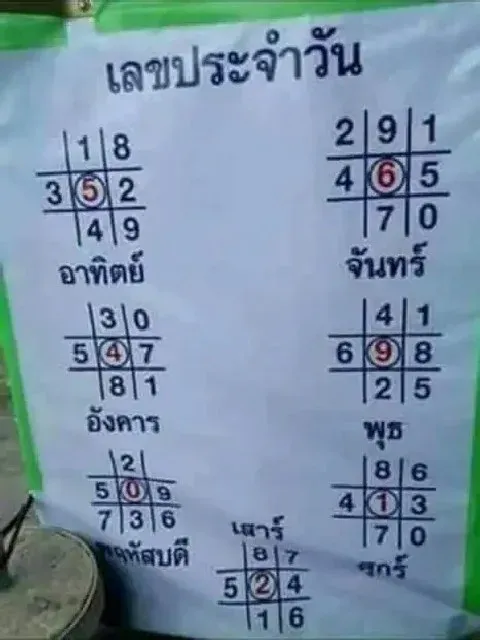 เลขประจำวัน
1 8
3 5 2
4 9
อาทิตย์
2 9 1
4 6 5
7 0
จันทร์
3 0
5 4 7
8 1
อังคาร
4 1
6 9 8
2 5
พุธ
2
5 0 9
7 3 6
8 6
4 1 3
7 0
เสาร์
8 7
5 2 4
1 6